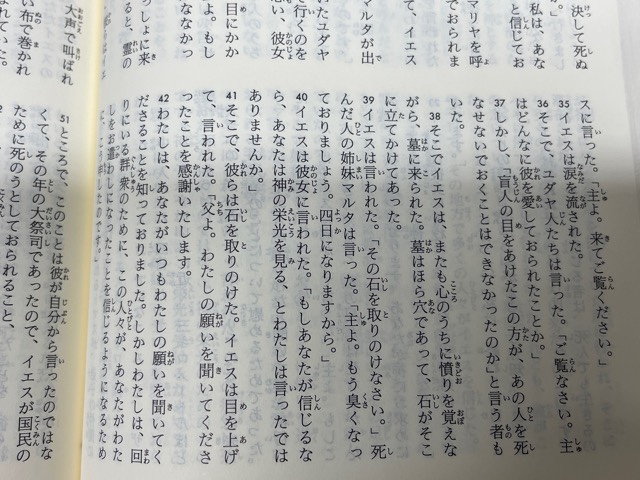 決して死ぬ
私は、あな
と信じてお
マリヤを呼
ておられま
て、イエス
マルタが出
いたユダヤ
行くのを
思い、彼女
目にかか
よ。もし
なかっ
っしょに来
霊の
大声で叫ばれ
い布で巻かれ
スに言った。「主よ。来てご覧ください。」
35 イエスは涙を流された。
36 そこで、ユダヤ人たちは言った。「ご覧なさい。主
はどんなに彼を愛しておられたことか。」
37 しかし、「盲人の目をあけたこの方が、あの人を死
なせないでおくことはできなかったのか」と言う者も
いた。
38 そこでイエスは、またも心のうちに憤りを覚えな
がら、墓に来られた。墓はほら穴であって、石がそこ
に立てかけてあった。
39 イエスは言われた。「その石を取りのけなさい。」死
んだ人の姉妹マルタは言った。「主よ。もう臭くなっ
ておりましょう。四日になりますから。」
40 イエスは彼女に言われた。「もしあなたが信じるな
ら、あなたは神の栄光を見る、とわたしは言ったでは
ありませんか。」
41 そこで、彼らは石を取りのけた。イエスは目を上げ
て、言われた。「父よ。わたしの願いを聞いてくださ
ったことを感謝いたします。
42 わたしは、あなたがいつもわたしの願いを聞いてく
ださることを知っておりました。しかしわたしは、回
りにいる群衆のために、この人々が、あなたがわた
しをお遣わしになったことを信じるようになるため
51 ところで、このことは彼が自分から言ったのではな
くて、その年の大祭司であったので、イエスが国民の
ために死のうとしておられること、